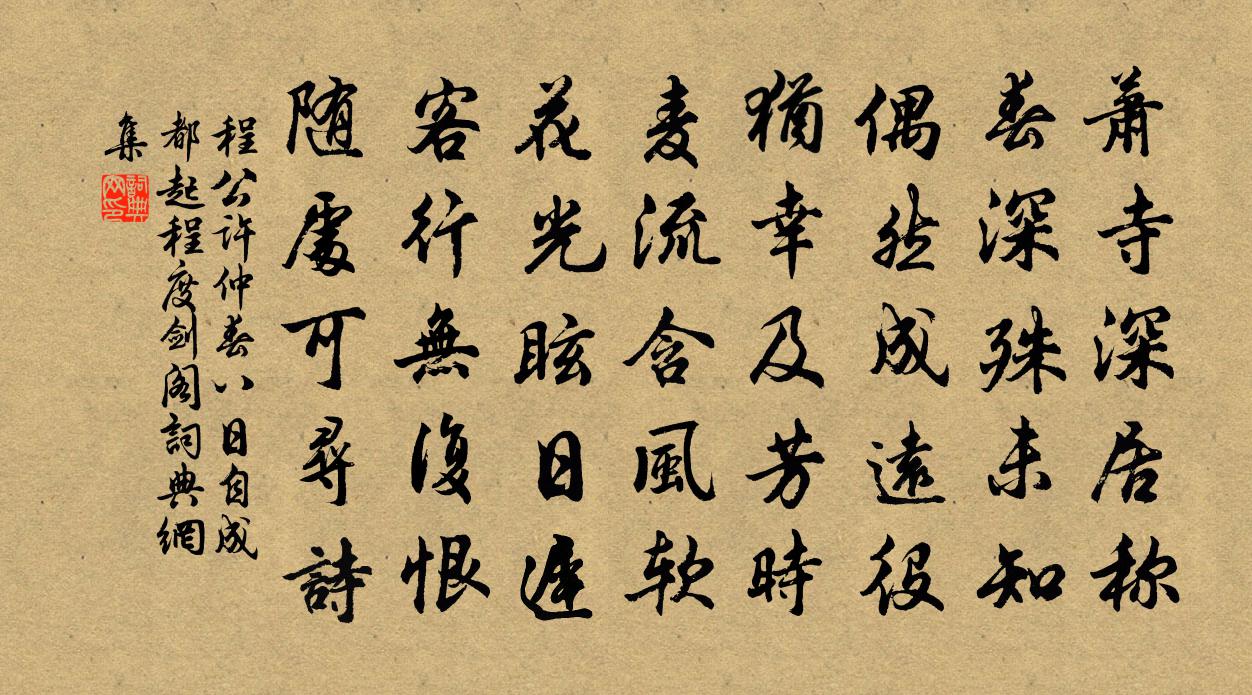 萧寺深居称
春深殊未知
偶然成遠役
猶幸及芳時
麦流含風软
花光眩日遲
客行無復恨
随處可尋詩
程公许仲春八日自成
都起程度剑阁詞典網
集
詞典
网印